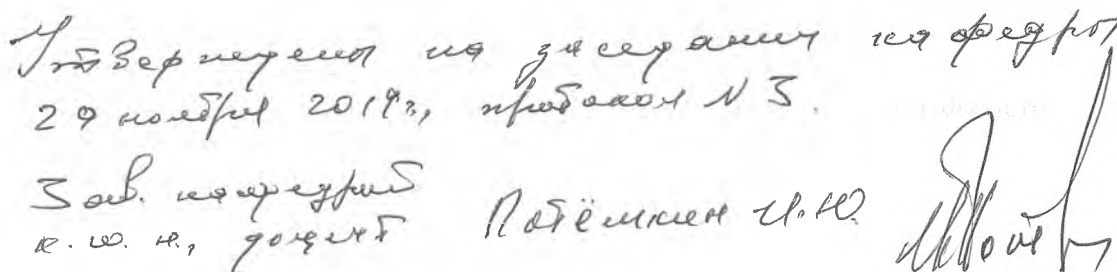 Утверждены на заседании кафедры
29 ноября 2019г., протокол № 3.
Зав. кафедрой
к.ю.н., доцент Потёмкин И.Ю.